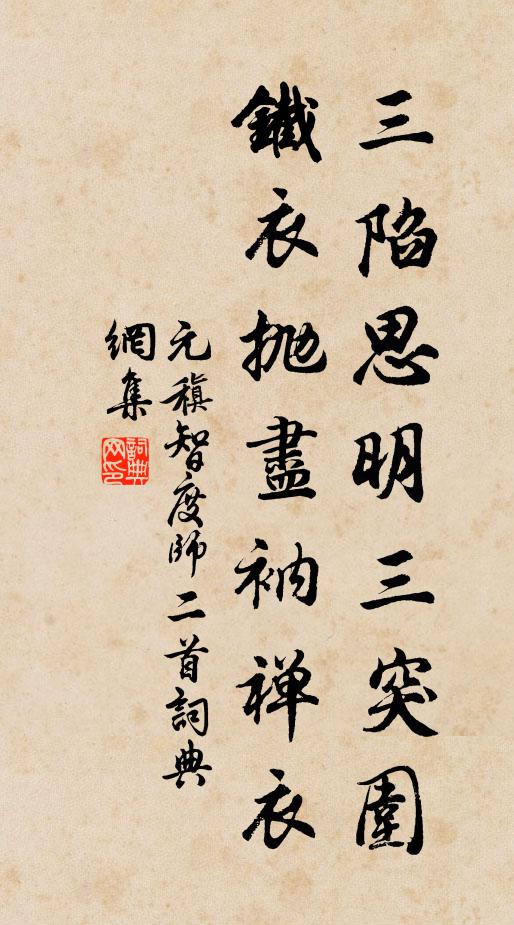 三陷思明三突圍
鐵衣拋盡衲禅衣
元稹智度師二首詞典
網集
詞典
网印